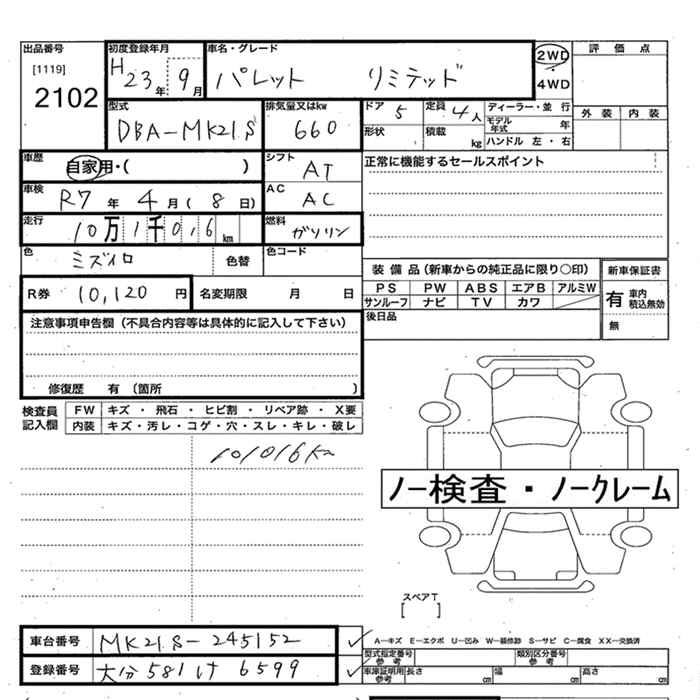 出品番号 初度登録年月 車名・グレード 2WD 評価点
[1119] H23年9月 パレット リミテッド 4WD
2102 外装 内装
型式 排気量又はkw ドア 5 定員 4人 ディーラー・並行
DBA-MK21S 660 モデル年式 年
形状 積載 kg ハンドル 左・右
車歴 自家用・( ) シフト AT 正常に機能するセールスポイント
車検 R7年4月(8日) AC AC
走行 10万1千016km 燃料 ガソリン
色 ミズイロ 色替 色コード
装備品(新車からの純正品に限り○印) 新車保証書
R券 10,120円 名変期限 月 日 PS PW ABS エアB アルミW 有 車内 積込無効
サンルーフ ナビ TV カワ
注意事項申告欄(不具合内容等は具体的に記入して下さい) 後日品 無
修復歴 有 (箇所 )
検査員記入欄 FW キズ・飛石・ヒビ割・リペア跡・X要
内装 キズ・汚レ・コゲ・穴・スレ・キレ・破レ
101016km
ノー検査・ノークレーム
スペアT
[ ]
車台番号 MK21S-245152 A—キズ E—エクボ U—凹み W—補修跡 S—サビ C—腐食 XX—交換済
型式指定番号 参考 類別区分番号 参考
登録番号 大分581け6599 車庫証明用 参考 長さ cm 幅 cm 高さ cm